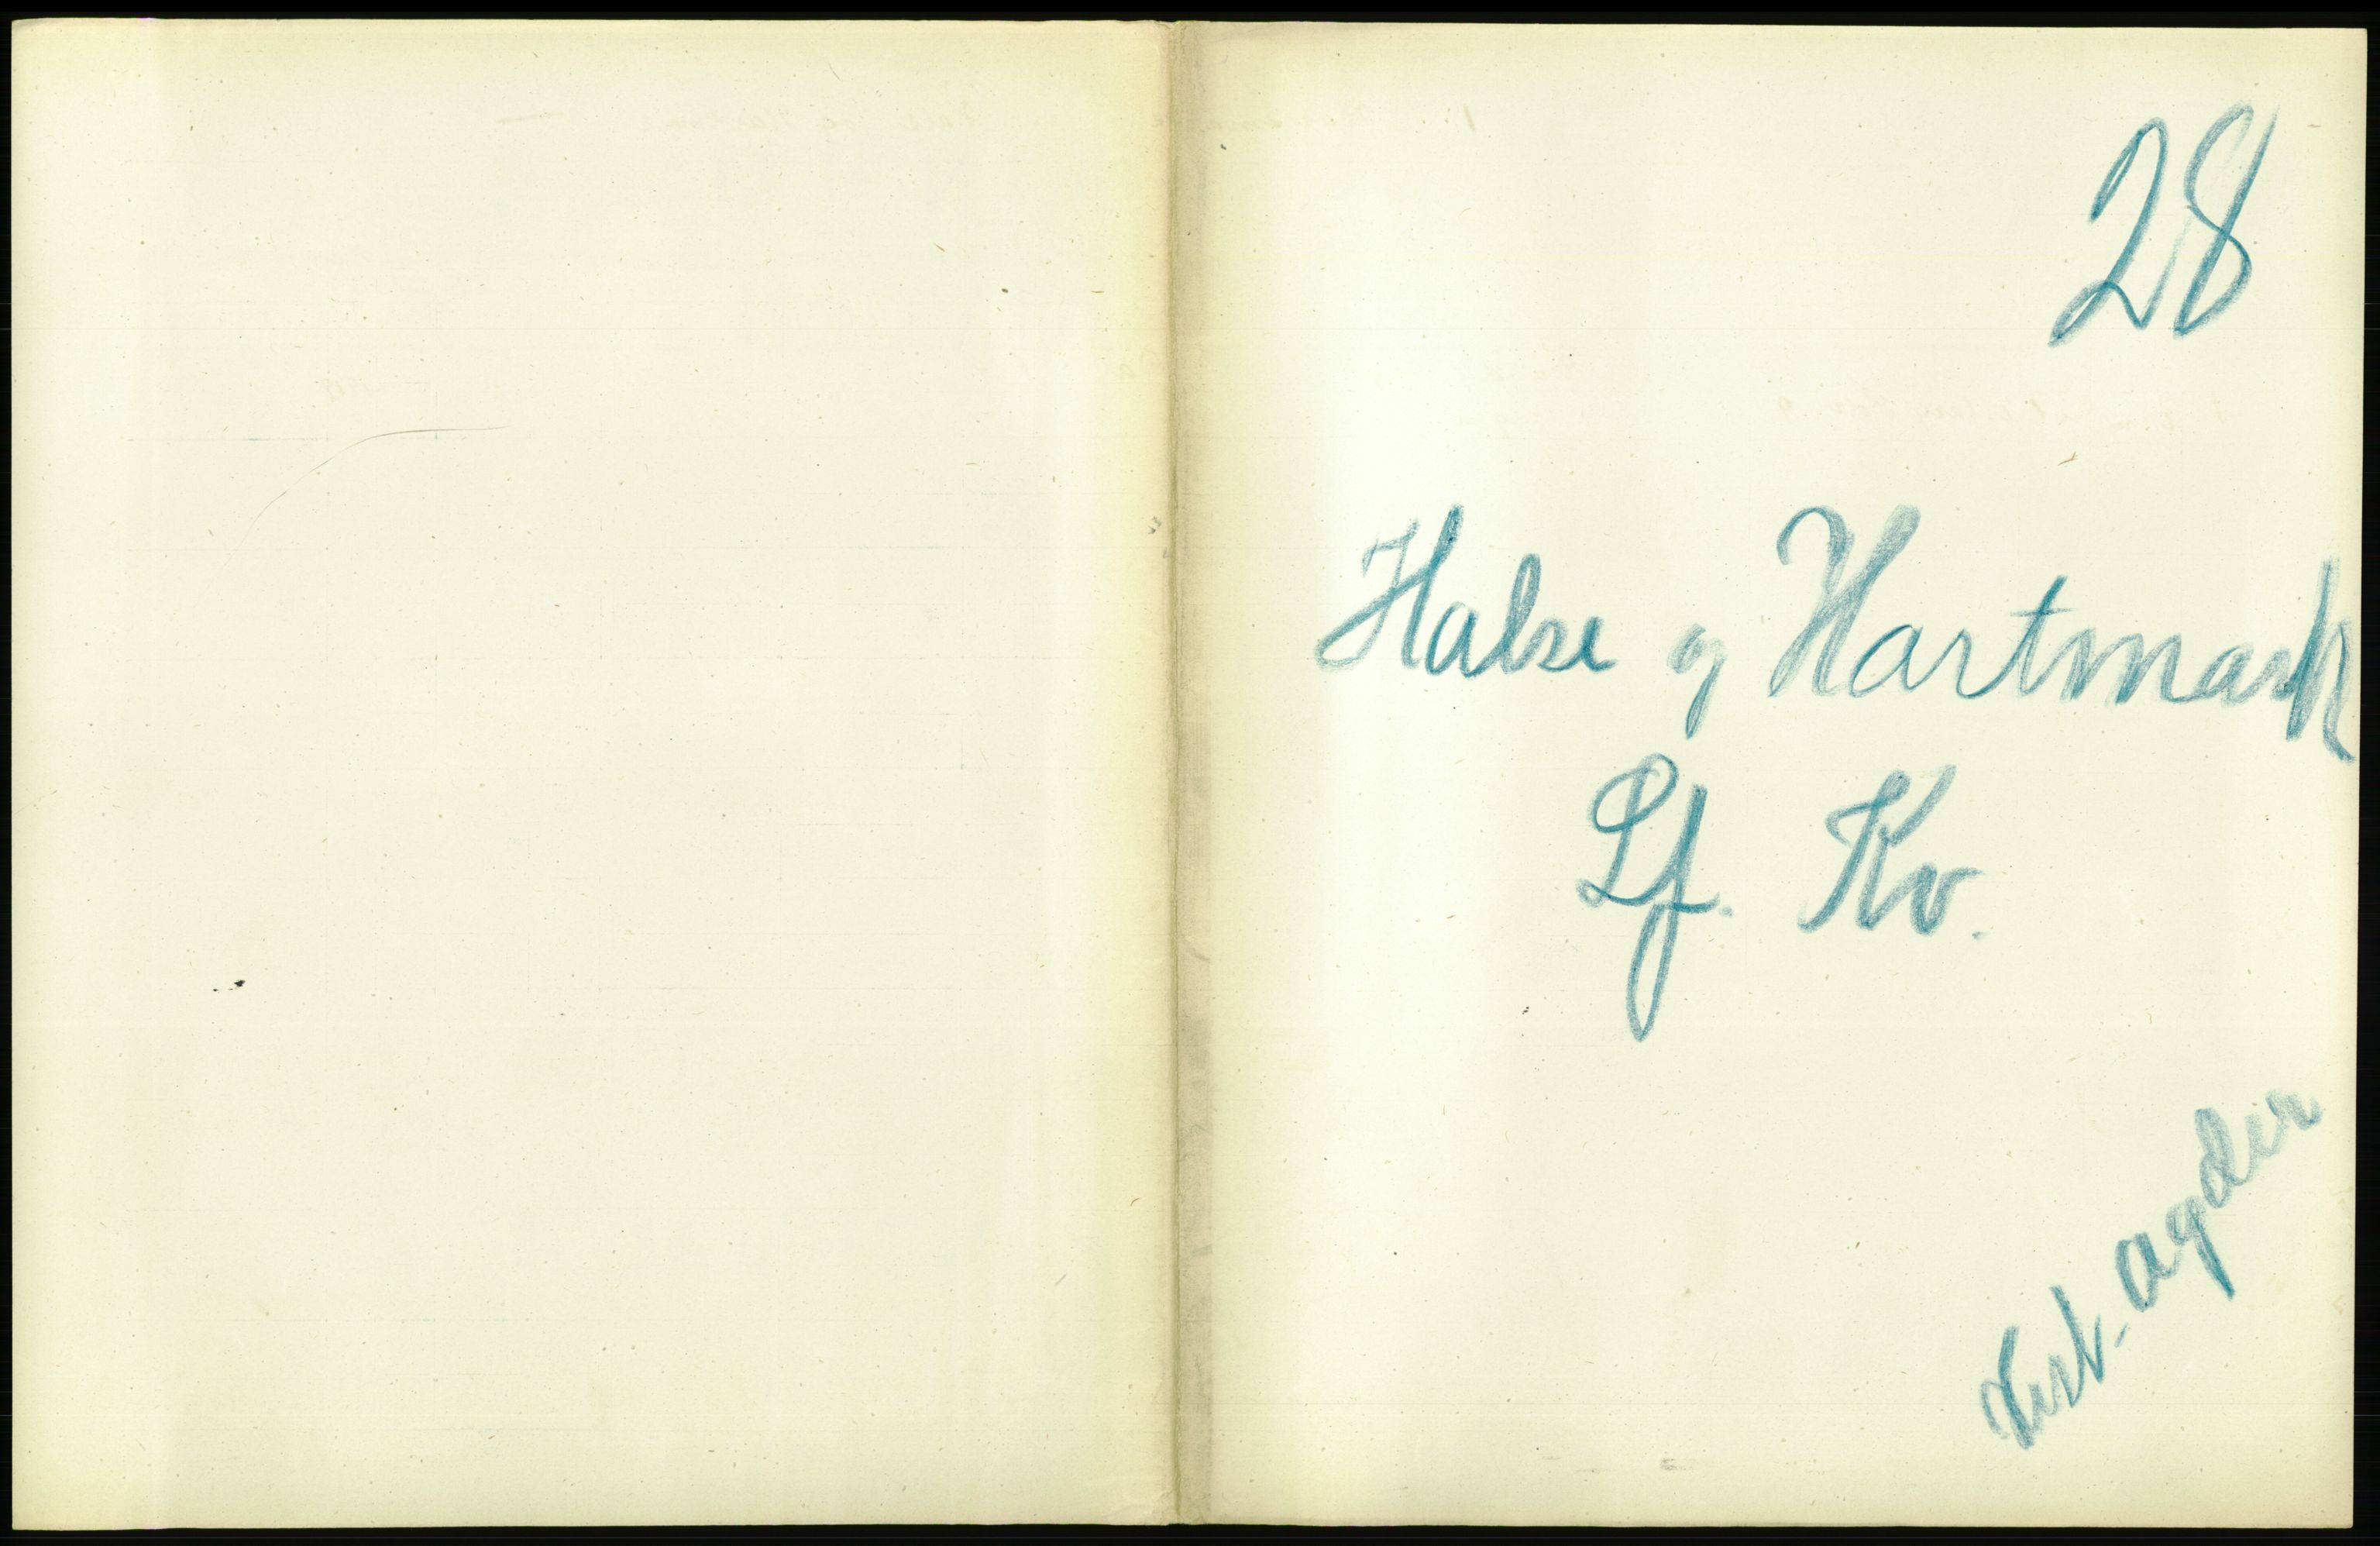 28
Halse og Hartmark
Lf. Kv.
Vest-Agder